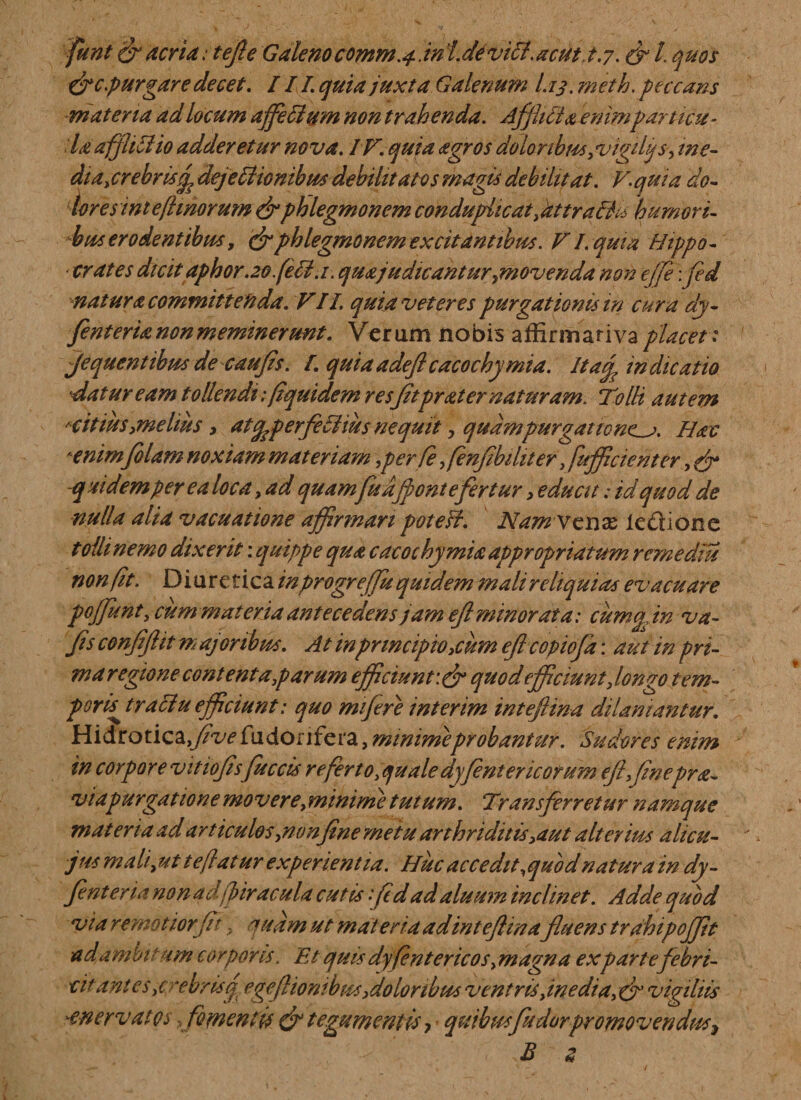 ſunt & acria: teſte Galeno comm.4.in l.de vict.acut.t.7. & l. quos
&c.purgare decet. III. quia juxta Galenum l.13. meth. peccans
materia ad locum affectum non trahenda. Afflictæ enim particu-
læ afflictio adderetur nova. IV. quia ægros doloribus,vigilijs, ine-
dia,crebrisq́ dejectionibus debilitatos magis debilitat. V.quia do-
lores inteſtinorum & phlegmonem conduplicat,attractis humori-
bus erodentibus, & phlegmonem excitantibus. VI. quia Hippo-
crates dicit aphor.20.ſect.1. quæ judicantur,movenda non eſſe: ſed
naturæ committenda. VII. quia veteres purgationis in cura dy-
ſenteriæ non meminerunt. Verum nobis affirmativa placet:
ſequentibus de cauſis. I. quia adeſt cacochymia. Itaq́ indicatio
datur eam tollendi: ſiquidem res ſit præter naturam. Tolli autem
citiùs,meliùs, atq́ perfectiùs nequit, quàm purgatione. Hæc
enim ſolam noxiam materiam,per ſe,ſenſibiliter,ſufficienter,&
quidem per ea loca, ad quam ſuâ ſponte fertur, educit: id quod de
nulla alia vacuatione affirmari poteſt. Nam venæ ſectione
tolli nemo dixerit: quippe quæ cacochymiæ appropriatum remediū
non ſit. Diuretica in progreſſu quidem mali reliquias evacuare
poſſunt, cùm materia antecedens jam eſt minorata: cùmq́ in va-
ſis conſiſtit majoribus. At in principio,cùm eſt copioſa: aut in pri-
ma regione contenta,parum efficiunt:& quod efficiunt,longo tem-
poris tractu efficiunt: quo miſerè interim inteſtina dilaniantur.
Hidrotica,ſive ſudorifera, minimè probantur. Sudores enim
in corpore vitioſis ſuccis referto,quale dyſentericorum eſt,ſine præ-
via purgatione movere,minimè tutum. Transferretur namque
materia ad articulos,non ſine metu arthriditis,aut alterius alicu-
jus mali,ut teſtatur experientia. Huc accedit,quòd natura in dy-
ſenteria non ad ſpiracula cutis: ſed ad aluum inclinet. Adde quòd
via remotior ſit, quàm ut materia ad inteſtina fluens trahi poſſit
ad ambitum corporis. Et quis dyſentericos,magna ex parte febri-
citantes,crebrisq́ egeſtionibus,doloribus ventris,inedia,& vigiliis
enervatos, fomentis & tegumentis, quibus ſudor promovendus,
B 2